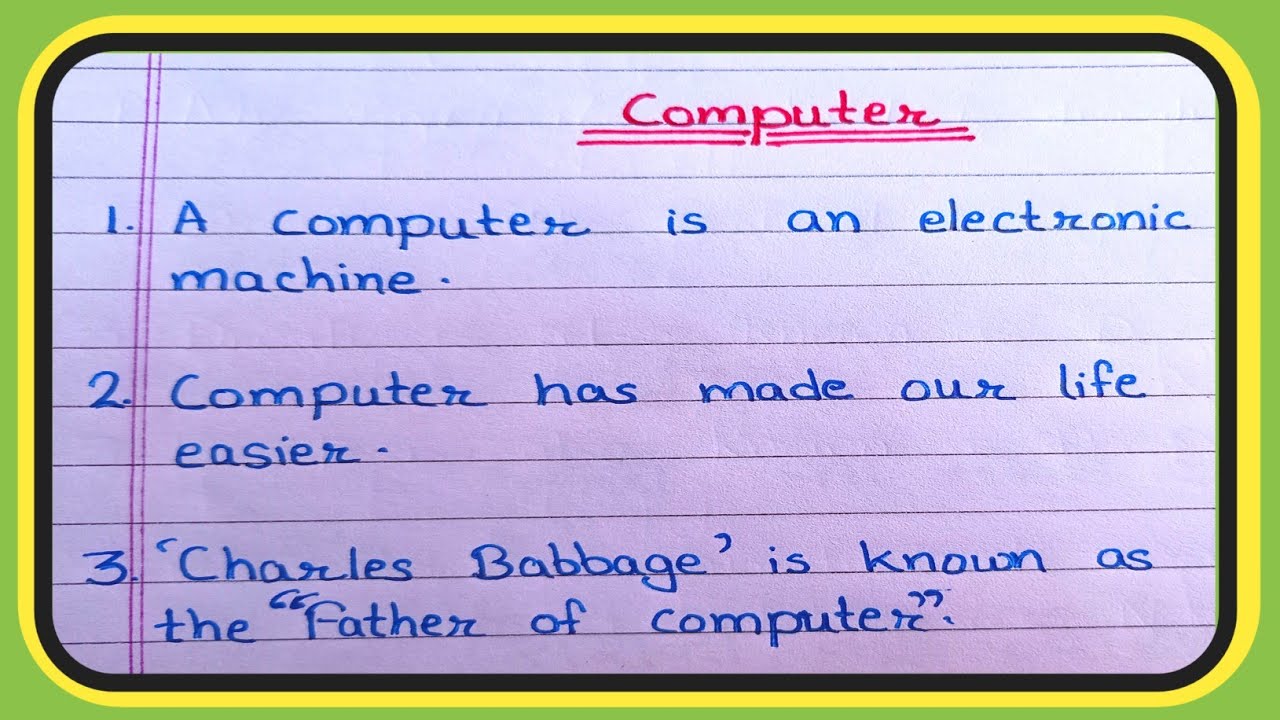 Computer
1. A computer is an electronic
machine.
2. Computer has made our life
easier.
3. 'Charles Babbage' is known as
the "Father of computer".